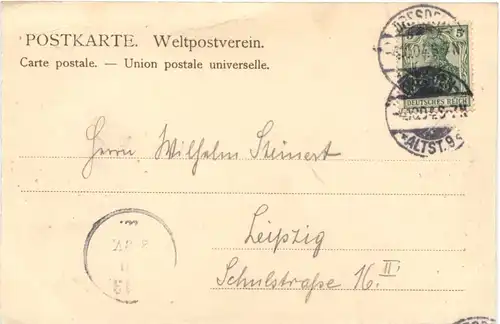 POSTKARTE. Weltpostverein.
Carte postale. — Union postale universelle.
5
DEUTSCHES REICH
ALTST. 9
Herrn Wilhelm Steinert
Leipzig
Schulstraße 16. II.